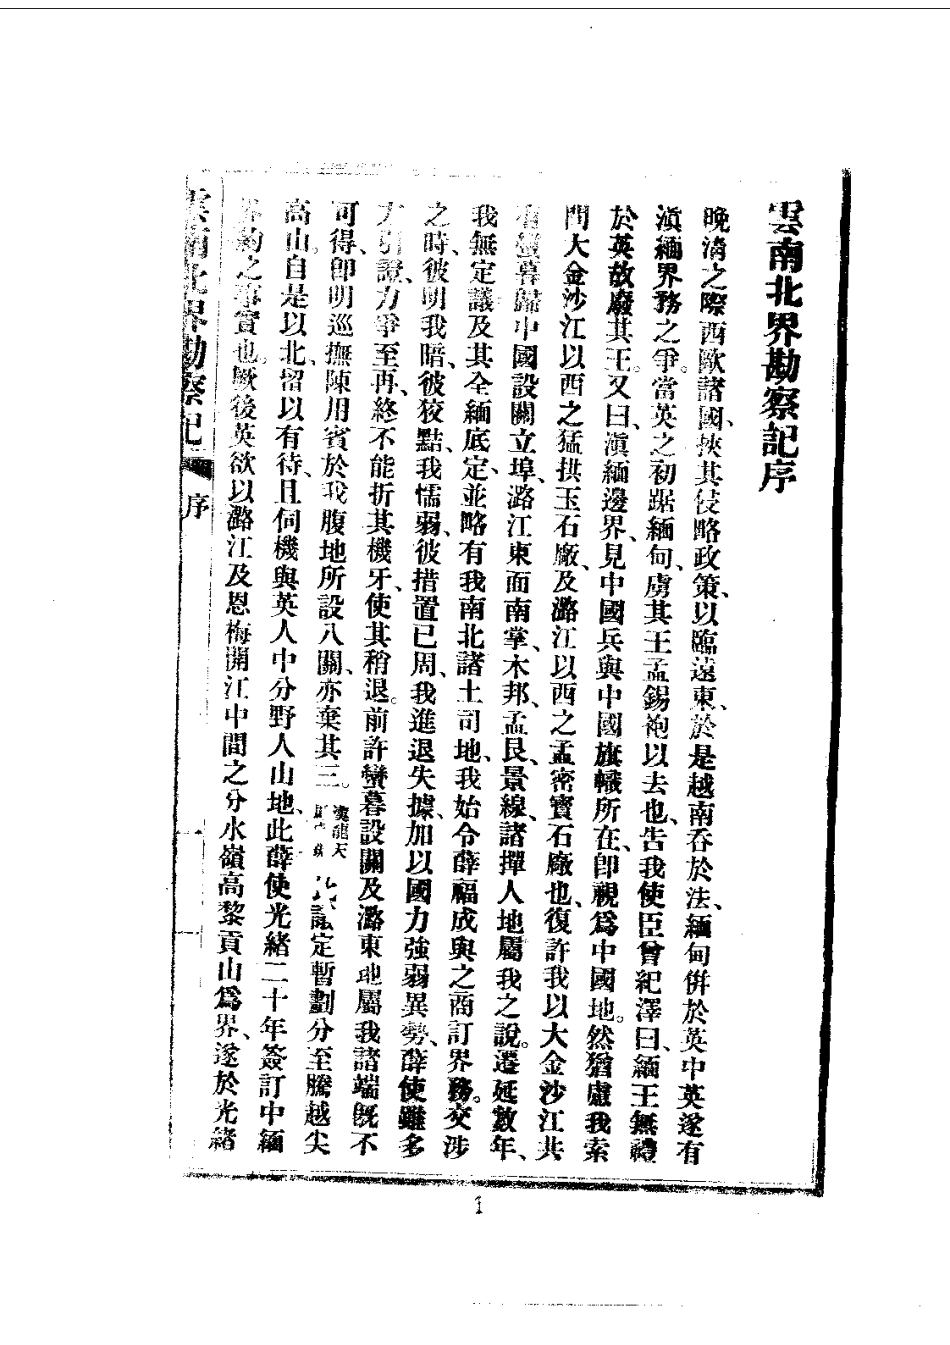 雲南北界勘察記序
晚淸之際西歐諸國、挾其侵略政策、以臨遠東、於是越南吞於法、緬甸併於英中英遂有
滇緬界務之爭。當英之初踞緬甸、虜其王孟錫袍以去也、告我使臣曾紀澤曰、緬王無禮
於英故廢其王。又曰、滇緬邊界、見中國兵與中國旗幟所在、卽視爲中國地。然猶慮我索
問大金沙江以西之猛拱玉石廠、及潞江以西之孟密寶石廠也、復許我以大金沙江共
有蠻暮歸中國設關立埠、潞江東面南掌、木邦、孟艮、景線、諸撣人地屬我之說。遷延數年、
我無定議及其全緬底定、並略有我南北諸土司地、我始令薛福成與之商訂界務。交涉
之時、彼明我暗、彼狡黠、我懦弱、彼措置已周、我進退失據、加以國力強弱異勢、薛使雖多
方引證、力爭至再、終不能折其機牙、使其稍退。前許蠻暮設關及潞東地屬我諸端旣不
可得、卽明巡撫陳用賓於我腹地所設八關、亦棄其三。漢龍天 議定暫劃分至騰越尖
高山。自是以北、留以有待、且伺機與英人中分野人山地、此薛使光緒二十年簽訂中緬
界約之事實也。厥後英欲以潞江及恩梅開江中間之分水嶺高黎貢山爲界、遂於光緒
雲南北界勘察記 序
1